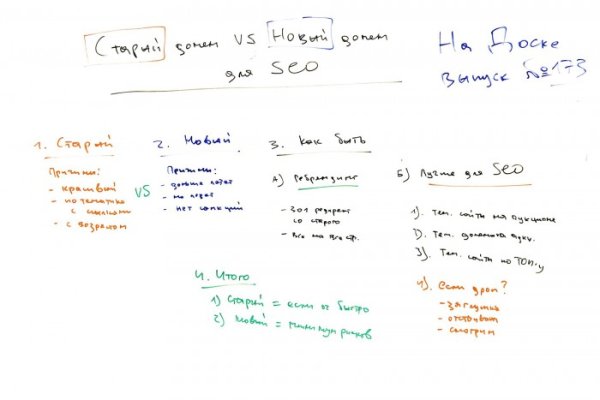 Старый домен VS Новый домен
для SEO
На Доске
выпуск №173
1. Старый
Причины:
- красивый
- по тематике
с ссылками
- с возрастом
VS
2. Новый
Причины:
- дольше
- нет санкций
3. Как быть
А) Ребрендинг
- 301 редирект
со старого
- Все на все стр.
Б) Лучше для SEO
1). Тем. сайты на аукционе
2). Тем. домена аукц.
3). Тем. сайты по ТОП-у
4). если дроп?
- загнулись
- отстаивать
- смотрим
4. Итого
1) Старый = если оч быстро
2) Новый = минимум рисков